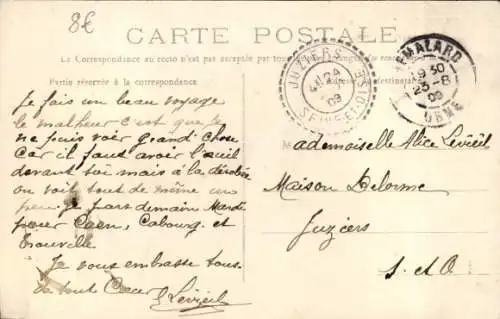 8€
CARTE POSTALE
La Correspondance au recto n'est pas acceptée par tous les pays étrangers
Partie réservée à la correspondance
Je fais un beau voyage
le malheur c'est que je
ne puis voir grand chose
Car il faut avoir l'œuil
devant toi mais à la dérobée
on voit tout de même un
peu je pars demain Mardi
pour Caen, Cabourg et
Trouville
Je vous embrasse tous
de tout Cœur
Levieil
JUZIERS
24
09
SEINE-ET-OISE
MALARD
9 30
23-8
09
ORNE
Mademoiselle Alice Levieil
Maison Delorme
Juziers
S. et O.